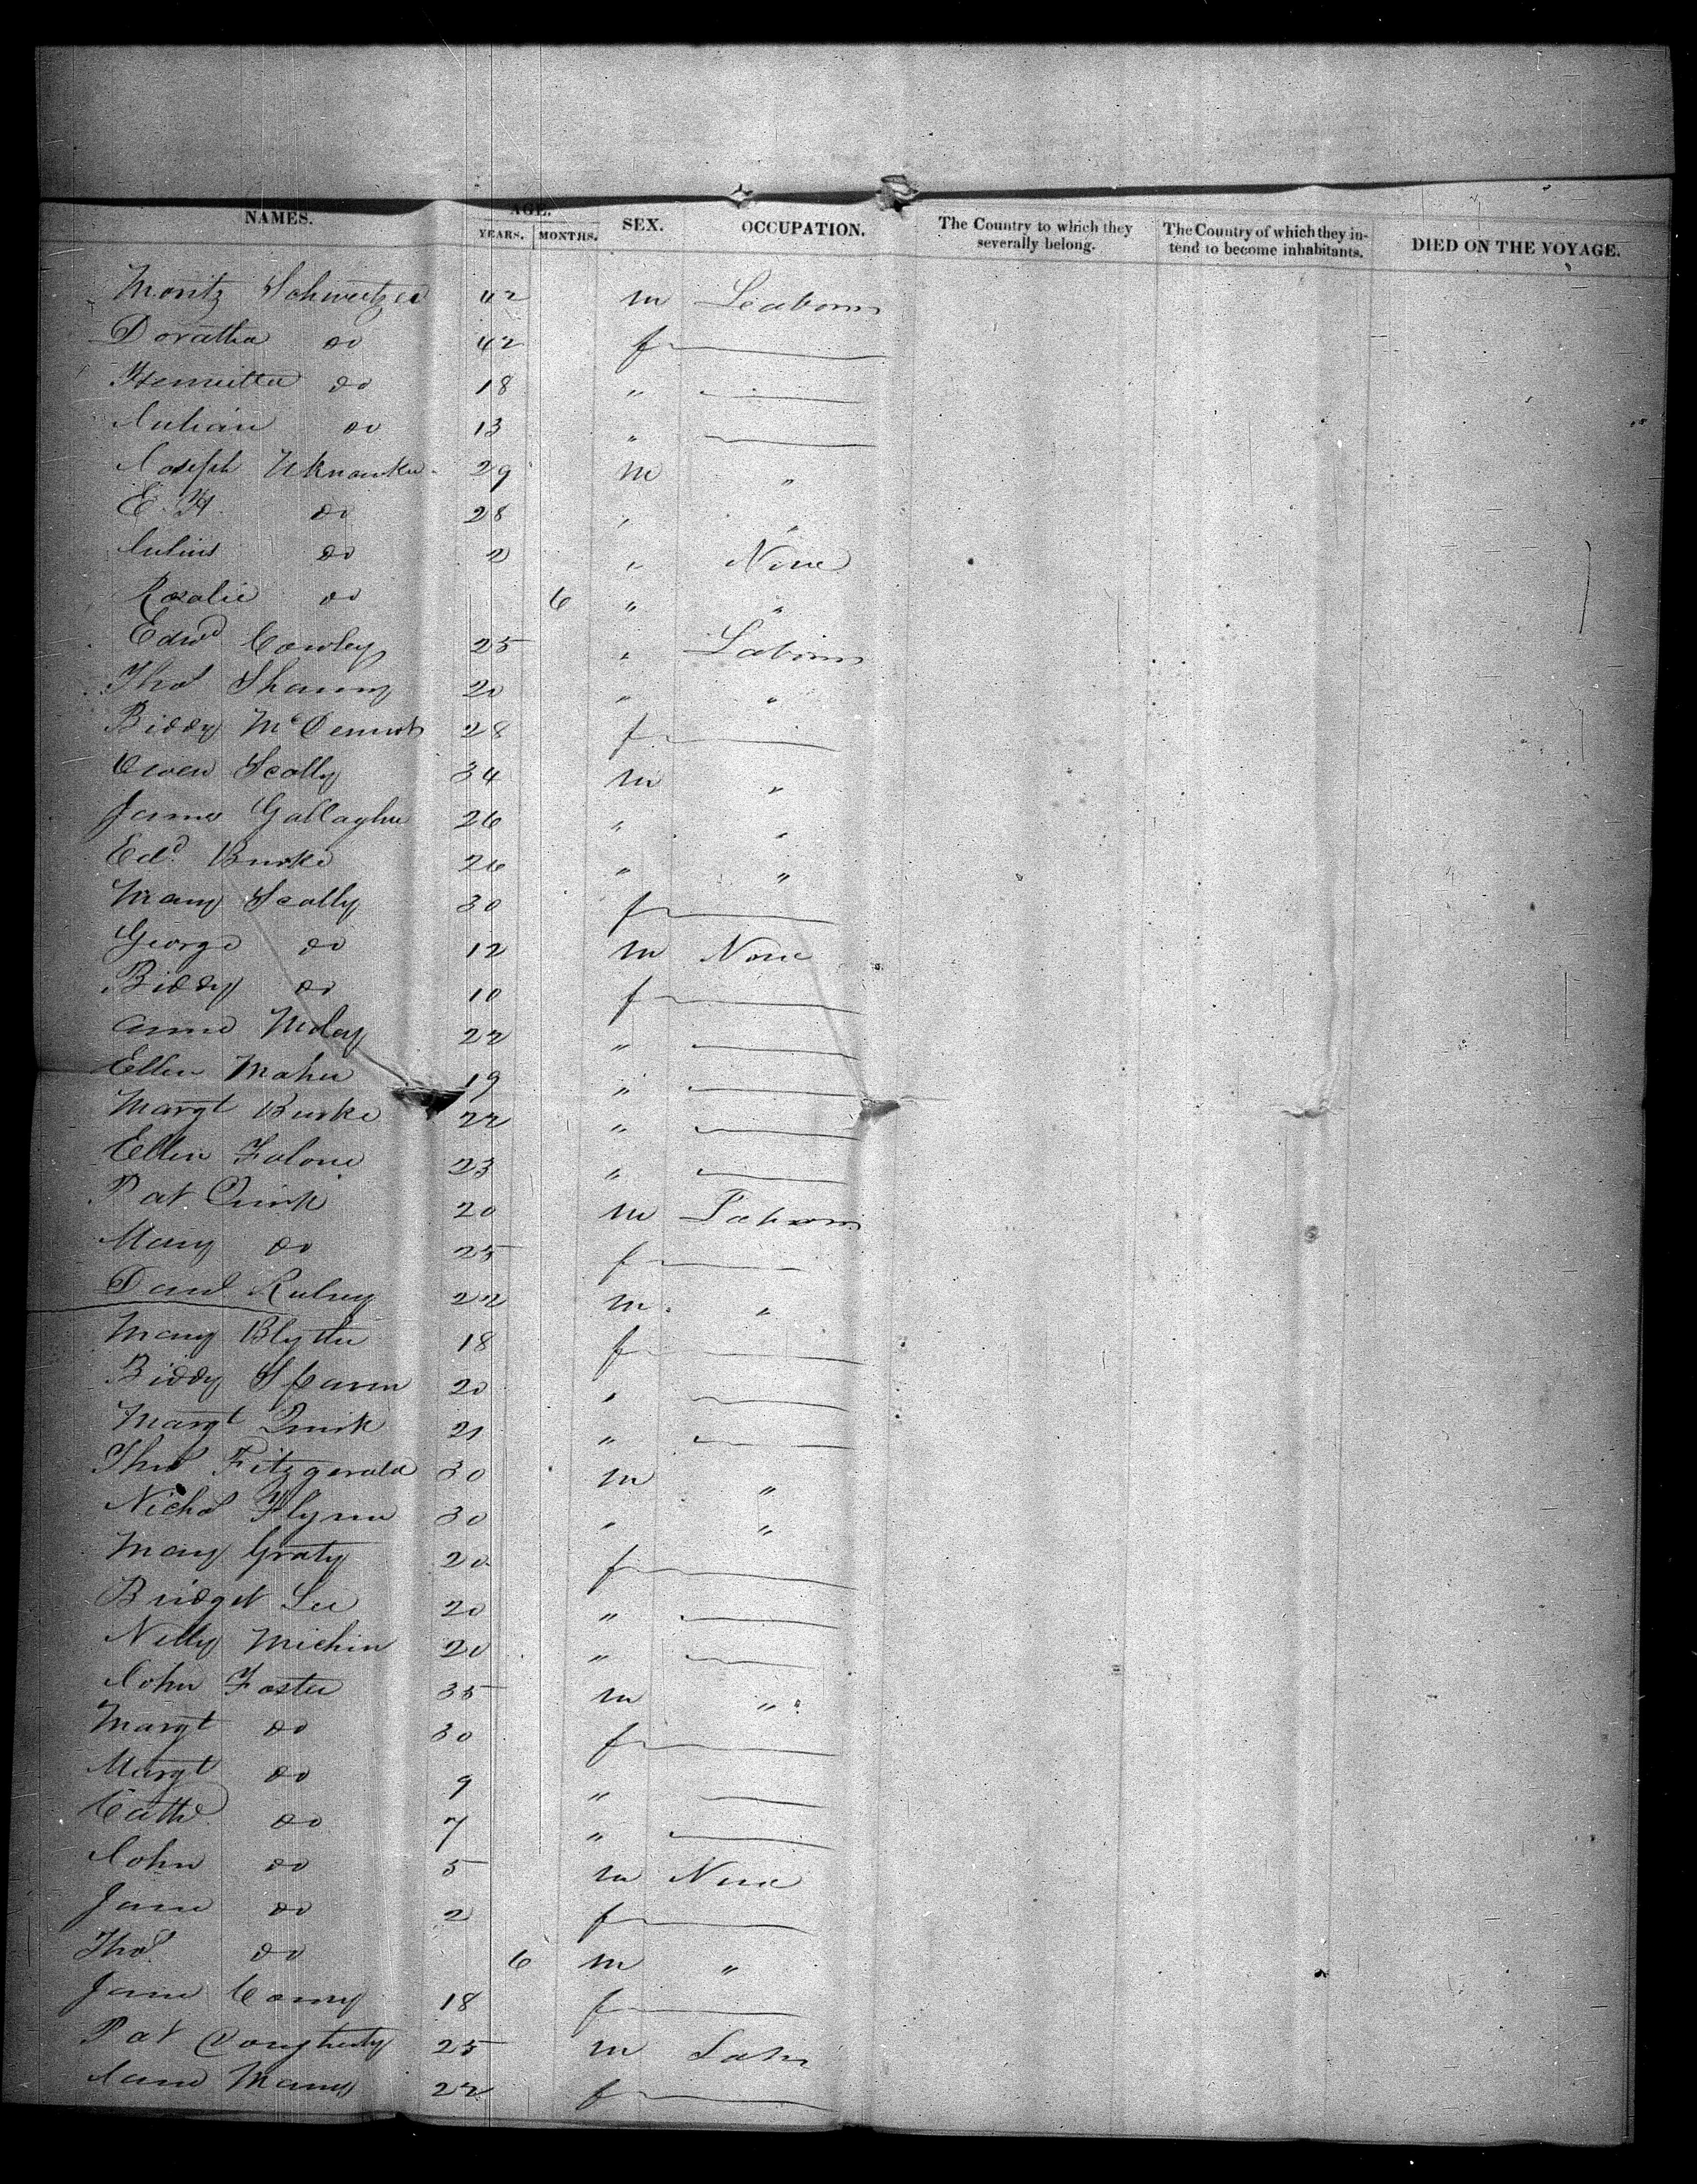 NAMES. AGE. YEARS. MONTHS. SEX. OCCUPATION. The Country to which they severally belong. The Country of which they intend to become inhabitants. DIED ON THE VOYAGE.
Moritz Schweitzer 42 m Laborer
Doratha do 42 f
Henriette do 18 "
Julian do 13 "
Joseph 29 m "
E. H. do 28 " "
Julius do 2 " None
Rosalie do 6 " "
Edwd Cowley 25 " Laborer
Thos 20 " "
Biddy McDermot 28 f
Owen Scally 34 m "
James Gallagher 26 " "
Edd Burke 26 " "
Mary Scally 30 f
George do 12 m None
Biddy do 10 f
Anne 22 "
Ellen Maher 19 "
Margt Burke 22 "
Ellen Falone 23 "
Pat Quirk 20 m Laborer
Mary do 25 f
Danl 22 m "
Mary Blythe 18 f
Biddy 20 "
Margt Quirk 21 "
Thos Fitzgerald 30 m "
Nichs Flynn 30 " "
Mary Graty 20 f
Bridget Lee 20 "
Nelly Michin 20 "
John Foster 35 m "
Margt do 30 f
Margt do 9 "
Cathe do 7 "
John do 5 m None
Jane do 2 f
Thos do 6 m "
Jane 18 f
Pat Dougherty 25 m Labr
Jane 22 f